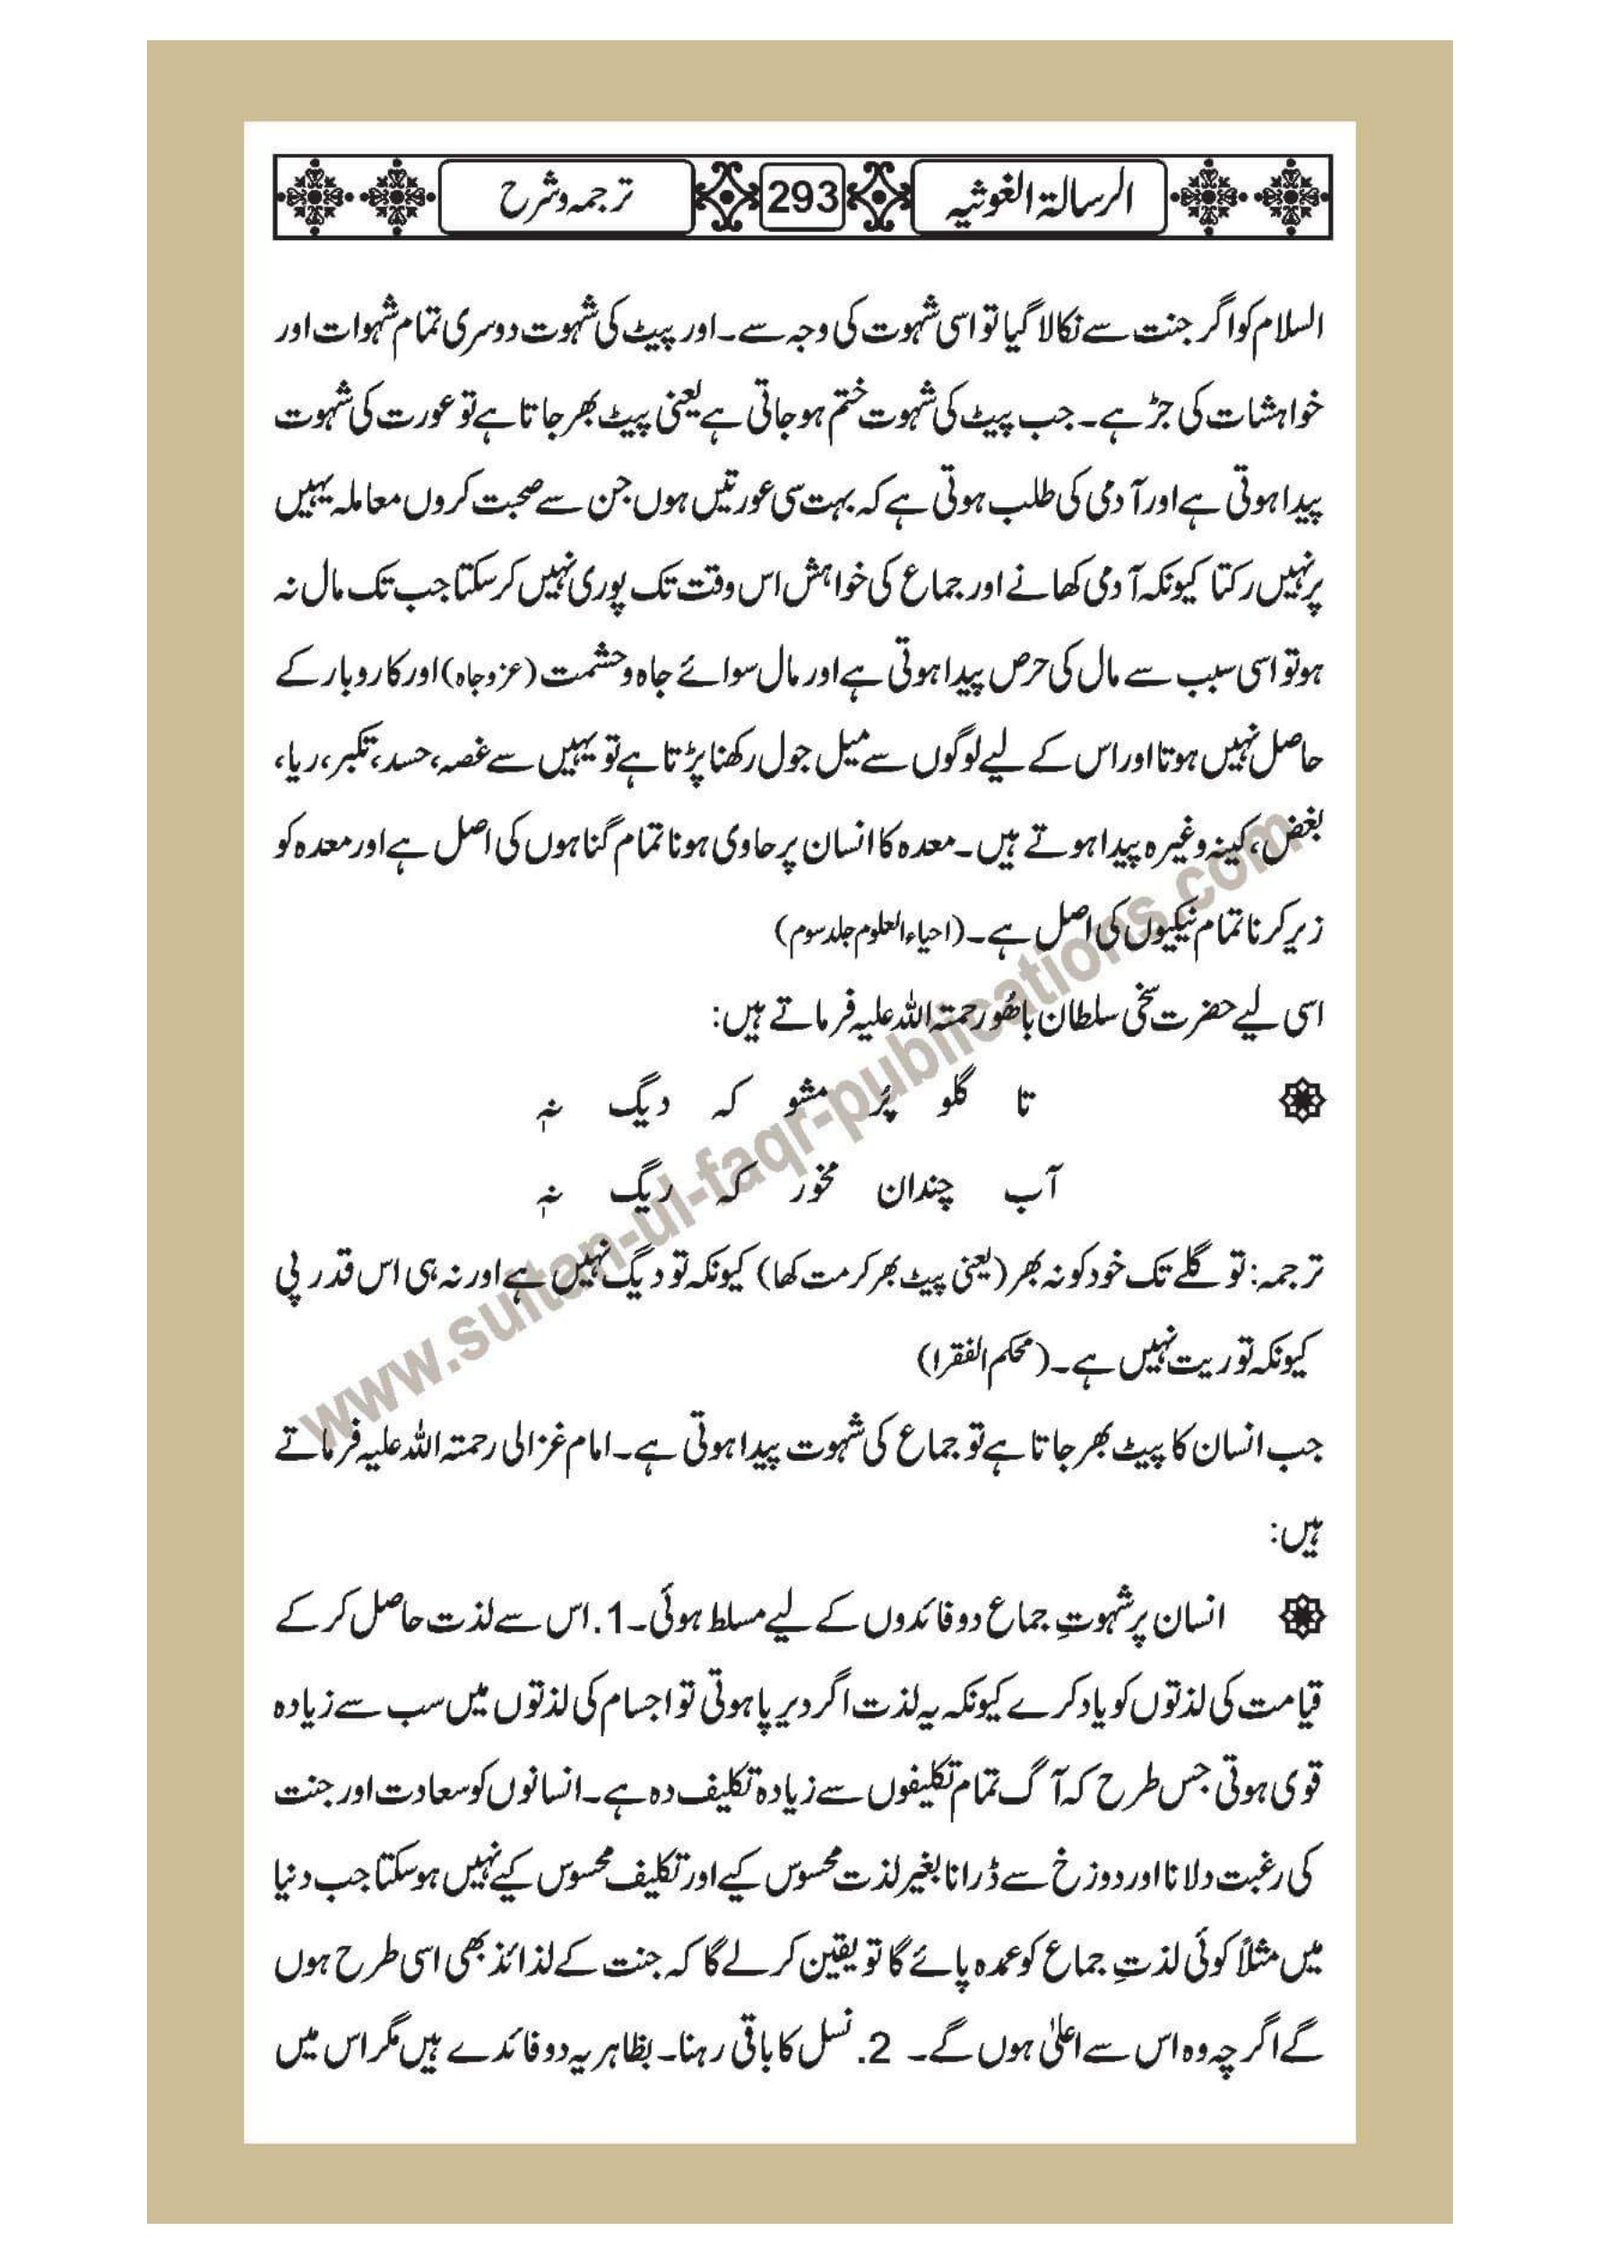 الرسالۃ الغوثیہ 293 ترجمہ و شرح
السلام کو اگر جنت سے نکالا گیا تو اسی شہوت کی وجہ سے۔ اور پیٹ کی شہوت دوسری تمام شہوات اور
خواہشات کی جڑ ہے۔ جب پیٹ کی شہوت ختم ہو جاتی ہے یعنی پیٹ بھر جاتا ہے تو عورت کی شہوت
پیدا ہوتی ہے اور آدمی کی طلب ہوتی ہے کہ بہت سی عورتیں ہوں جن سے صحبت کروں معاملہ یہیں
پر نہیں رکتا کیونکہ آدمی کھانے اور جماع کی خواہش اس وقت تک پوری نہیں کر سکتا جب تک مال نہ
ہو تو اسی سبب سے مال کی حرص پیدا ہوتی ہے اور مال سوائے جاہ و حشمت (عز و جاہ) اور کاروبار کے
حاصل نہیں ہوتا اور اس کے لیے لوگوں سے میل جول رکھنا پڑتا ہے تو یہیں سے غصہ، حسد، تکبر، ریا،
بغض، کینہ وغیرہ پیدا ہوتے ہیں۔ معدہ کا انسان پر حاوی ہونا تمام گناہوں کی اصل ہے اور معدہ کو
زیر کرنا تمام نیکیوں کی اصل ہے۔ (احیاء العلوم جلد سوم)
اسی لیے حضرت سخی سلطان باھُو رحمتہ اللہ علیہ فرماتے ہیں:
تا گلو پُر مشو کہ دیگ نہٖ
آب چندان مخور کہ ریگ نہٖ
ترجمہ: تو گلے تک خود کو نہ بھر (یعنی پیٹ بھر کر مت کھا) کیونکہ تو دیگ نہیں ہے اور نہ ہی اس قدر پی
کیونکہ تو ریت نہیں ہے۔ (محکم الفقرا)
جب انسان کا پیٹ بھر جاتا ہے تو جماع کی شہوت پیدا ہوتی ہے۔ امام غزالی رحمتہ اللہ علیہ فرماتے
ہیں:
انسان پر شہوتِ جماع دو فائدوں کے لیے مسلط ہوئی۔ 1. اس سے لذت حاصل کر کے
قیامت کی لذتوں کو یاد کرے کیونکہ یہ لذت اگر دیرپا ہوتی تو اجسام کی لذتوں میں سب سے زیادہ
قوی ہوتی جس طرح کہ آگ تمام تکلیفوں سے زیادہ تکلیف دہ ہے۔ انسانوں کو سعادت اور جنت
کی رغبت دلانا اور دوزخ سے ڈرانا بغیر لذت محسوس کیے اور تکلیف محسوس کیے نہیں ہو سکتا جب دنیا
میں مثلاً کوئی لذتِ جماع کو عمدہ پائے گا تو یقین کر لے گا کہ جنت کے لذائذ بھی اسی طرح ہوں
گے اگرچہ وہ اس سے اعلیٰ ہوں گے۔ 2. نسل کا باقی رہنا۔ بظاہر یہ دو فائدے ہیں مگر اس میں
www.sultan-ul-faqr-publications.com